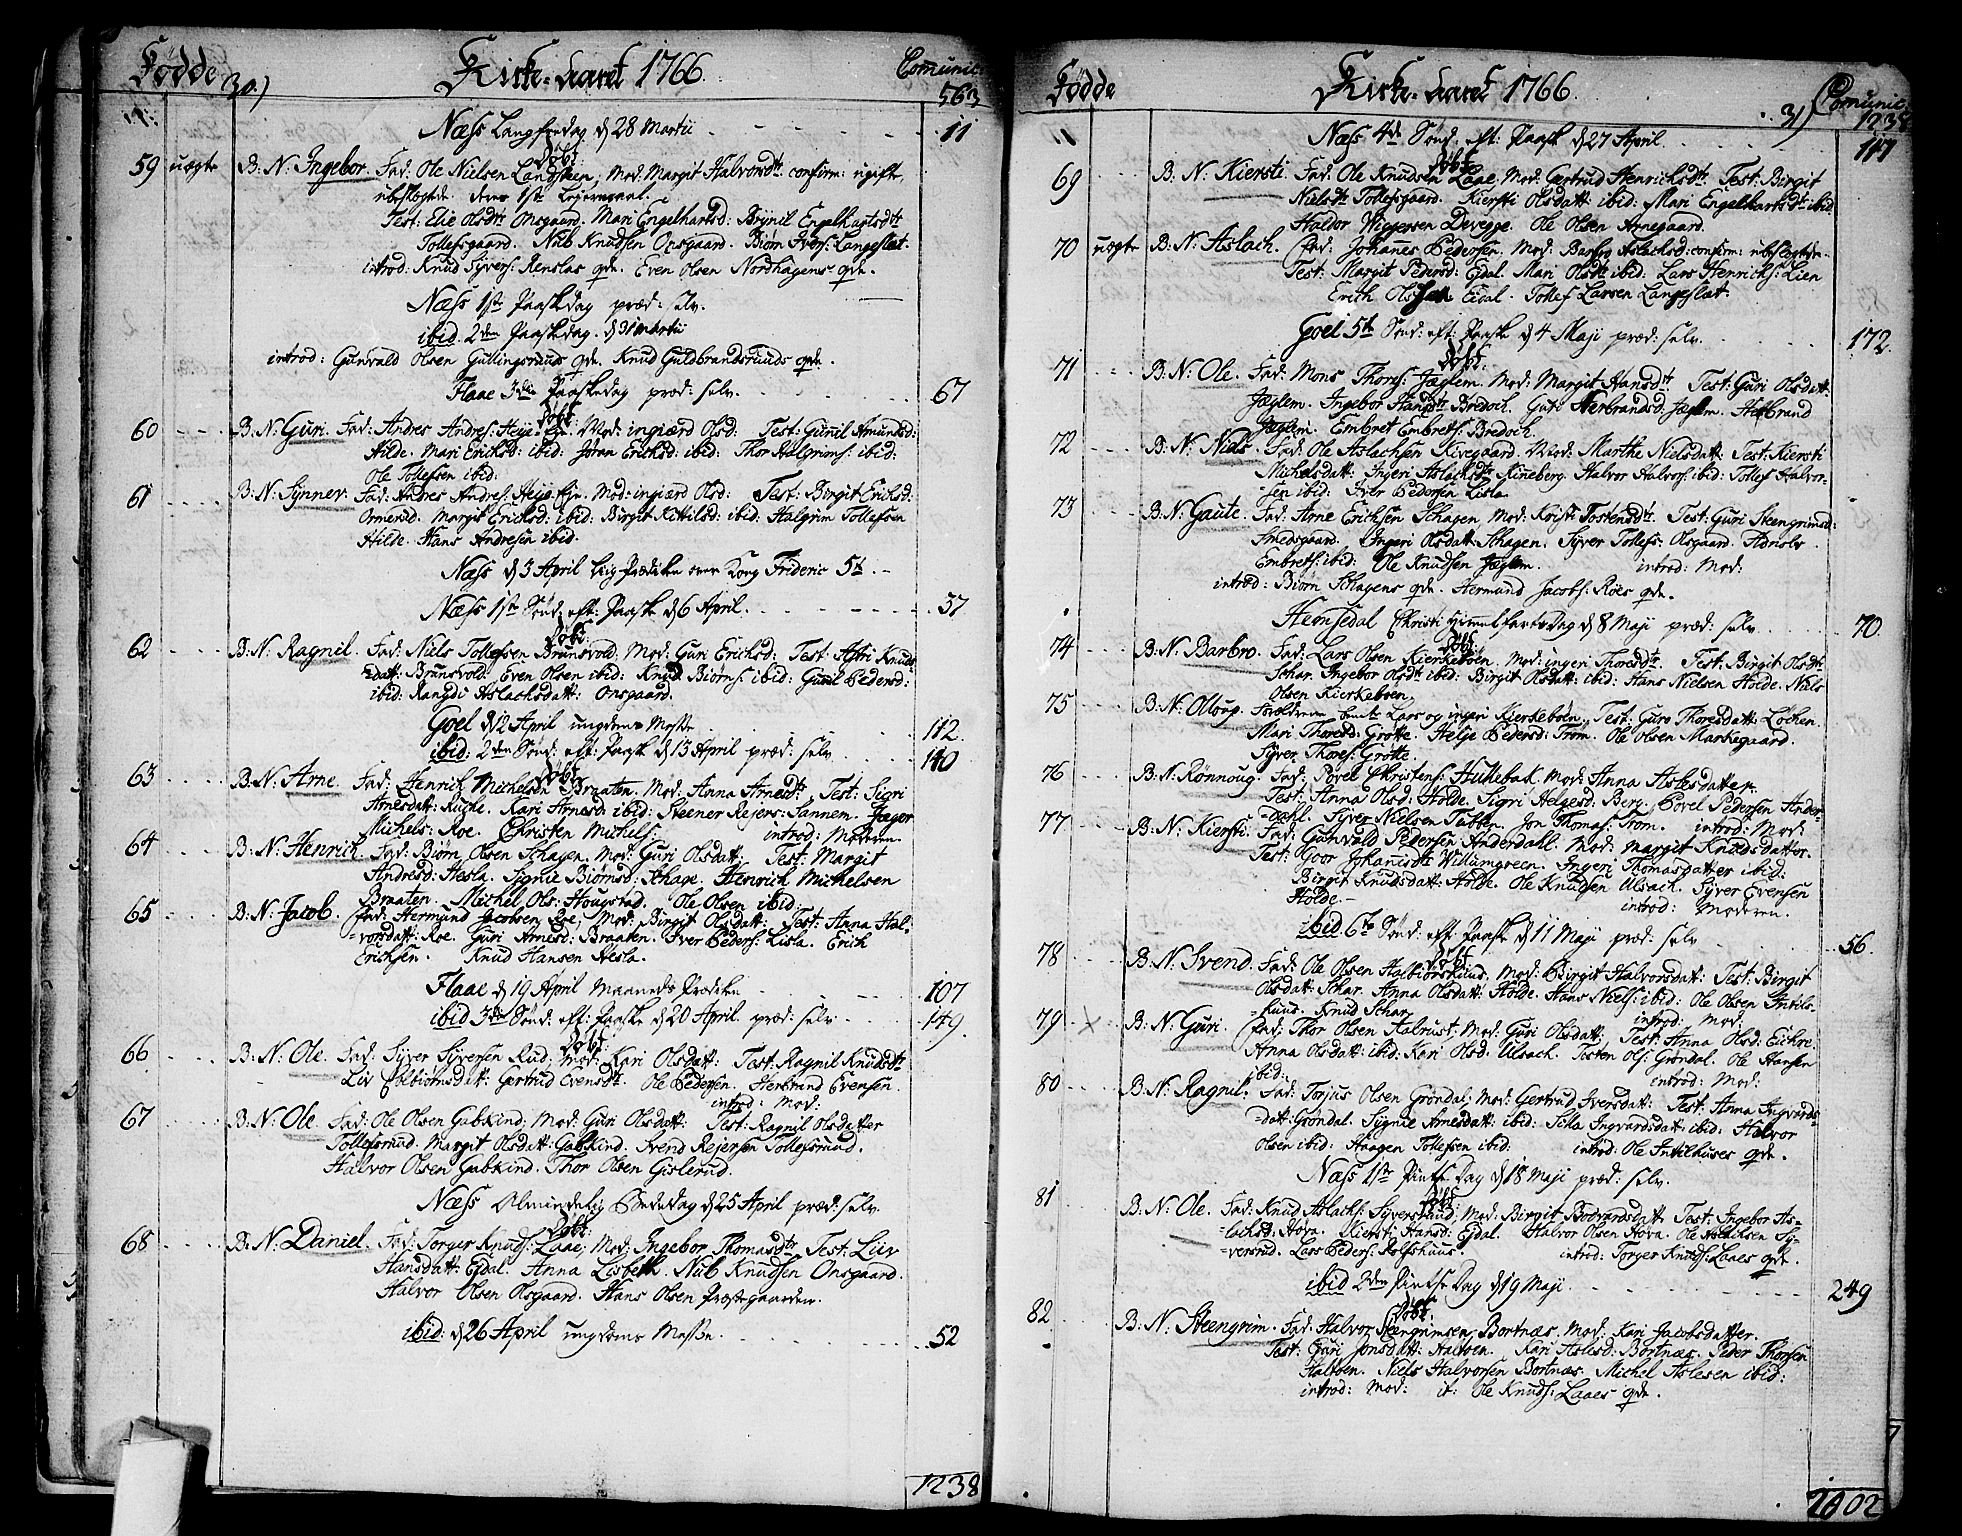 Fødde 30.) Kirke-Aaret 1766. Comunic:
563
Næss Langfredag d 28 Martii 11
Døbt:
59 uægte B. N. Ingebor. Fad: Ole Nielsen Langslein, Mod: Margit Halvorsdtr confirm: ugifte,
ubeslegtede. deres 1ste Leiermaal.
Test: Elie Olsdtr Onsgaard. Mari Engelhartsd: Brynil Engelhagtsdtr
Tollefsgaard. Nub Knudsen Onsgaard. Biørn Ivers: Langeslæt.
introd: Knud Syvers: Renslos qde. Even Olsen Nordhagens qde.
Næss 1ste Paaskedag præd: selv.
ibid 2den Paaskdag. d 31 Martii
introd: Gunvald Olsen Gullingsruds qde. Knud Guldbrandsruuds qde.
Flaae 3die Paaskedag præd: selv. 67
Døbt.
60 B. N. Guri. Fad: Andres Andres: Heye Eie. Mod: ingiærd Olsd: Test: Gunil Amundsd:
Hilde. Mari Ericksd: ibid: Jøran Ericksd: ibid: Thor Halgrims: ibid:
Ole Tollefsen ibid:
61 B. N. Synnev. Fad: Andres Andres: Heye Eje. Mod: ingiærd Olsd: Test: Birgit Ericksd:
Ormersd. Margit Ericksd: ibid: Birgit Kittilsd: ibid. Halgrim Tollefsen
Hilde. Hans Andresen ibid.
Næss d 3 April Liig Prædiken over Kong Frideric 5t.
Næss 1ste Sønd: eft: Paaske d 6 April. 57
Døbt:
62 B. N. Ragnil. Fad: Niels Tollefsen Brunsvold, Mod: Guri Ericksd: Test: Astri Knuds
=datt: Brunsvold. Even Olsen ibid: Knud Biørns: ibid: Gunil Pedersd:
ibid: Rangdi Aslachsdatt: Onsgaard.
Goel d 12 April ungdoms Messe 112.
ibid: 2den Sønd: eft: Paask d 13 April præd: selv 140
Døbt.
63 B. N. Arne. Fad: Henrik Michelsen Braaten. Mod: Anna Arnesdtr Test: Sigri
Arnesdatt: Rughe. Kari Arnesd: ibid: Steener Rejers: Sannem. Jæger
Michels: Roe. Christen Michels: introd: Moderen.
64 B. N. Henrich. Fad: Biørn Olsen Schagen. Mod: Guri Olsdatt: Test: Margit
Andresd: Hesla. Signie Biørnsd: Schage. Henrich Michelsen
Braaten. Michel Ols: Hougstad. Ole Olsen ibid.
65 B. N. Jacob. Fad: Hermund Jacobsen Roe, Mod: Birgit Olsdatt: Test: Anna Hal-
=vorsdatt: Roe. Guri Arnesd: Braaten. Iver Peders: Lisla. Erich
Erichsen. Knud Hansen Hesla.
Flaae d 19 April Maaneds Prædiken 107
ibid 3die Sønd: eft: Paaske d 20 April præd: selv 149.
Døbt:
66 B. N. Ole. Fad: Syver Syversen Rud, Mod: Kari Olsdatt: Test: Ragnil Knudsdtr
Liv Colbiørnsdatt: Gertrud Evensdtr. Ole Pedersen. Herbrand Evensen.
introd: Mod:
67 B. N. Ole Fad: Ole Olsen Gabkind, Mod: Guri Olsdatt: Test: Ragnil Olsdatter
Tollefsrud. Margit Olsdatt: Gabkind. Svend Rejersen Tollefsruud.
Halvor Olsen Gabkind. Thor Olsen Gislerud.
Næss Almindelig Bededag d 25 April præd: selv
Døbt:
68 B. N. Daniel. Fad: Torger Knuds: Laae, Mod: Ingebor Thomasdtr Test: Liv
Hansdatt: Ejdal. Anna Lisbeth. Nub Knudsen Onsgaard.
Halvor Olsen Olsgaard. Hans Olsen Præstegaarden.
ibid: d 26 April ungdoms Messe. 52
1238
Fødde Kirke-Aaret 1766. 31) Comunic:
1238
Næss 4de Sønd: eft: Paask d 27 April 117
Døbt.
69 B. N. Kiersti Fad: Ole Knudsen Laae, Mod: Gertrud Henrichsdtr Test: Birgit
Nielsdtr Tollefsgaard. Kiersti Olsdatt: ibid: Mari Engelhartsdtr ibid
Haldor Wiggersen Devegge. Ole Olsen Arnegaard.
70 uægte B. N. Aslach. Fad: Johannes Pedersen. Mod: Barbro Aslachsd: confirm: ubeslegtede.
Test: Margit Pedersd: Ejdal. Mari Olsdtr ibid: Lars Henrichs: Lien
Erich Olsen Eidal. Tollef Larsen Langeslæt.
Goel 5te Sønd: eft: Paask d 4 Maji præd: selv. 172.
Døbt:
71 B. N. Ole. Fad: Mons Thores: Jæglem. Mod: Margit Hansdtr Test: Guri Olsdatt:
Jæglem. Ingebor Hansdtr Bredoch. Guri Herbrandsd: Jæglem. Herbrand
Jæglem. Embret Embrets: Bredoch.
72 B. N. Niels. Fad: Ole Aslachsen Kivegaard. Mod: Marthe Nielsdatt: Test: Kiersti
Michelsdatt: Ingeri Aslachsdtr Kineberg. Halvor Halvors: ibid: Tollef Halvor-
=sen ibid: Iver Pedersen Lisla.
73 B. N. Gaute. Fad: Arne Erichsen Schagen, Mod: Kristi Tostensdtr. Test: Guri Steengrimsd:
Smedsgaard. Ingeri Olsdatt: Schagen. Syver Tollefs: Olsgaard. Adrisls
Embrets: ibid: Ole Knudsen Jæglem. introd: Mod:
introd: Biørn Schagens qde. Hermund Jacobs: Roes qde.
Hemsedal Christi Himmelfarts Dag d 8 Maji præd: selv 70.
Døbt
74 B. N. Barbro. Fad: Lars Olsen Kierkebøen. Mod: ingeri Thoresdtr Test: Birgit Olsdtr
Schar. Ingebor Olsdtr ibid: Birgit Olsdatt: ibid: Hans Nielsen Holde. Niels
Olsen Kierkebøen.
75 B. N. Olloug. Forældrene bemte Lars og ingeri Kierkebøen. Test: Guro Thoresdatt: Løchen.
Mari Thoresd: Grøtte. Helje Pedersd: Trøm. Ole Olsen Markegaard.
Syver Thores: Grøtte.
76 B. N. Rønnoug. Fad: Povel Christens: Hukebak, Mod: Anna Aslesdatter.
Test: Anna Olsd: Holde. Sigri Helgesd: Berg. Povel Pedersen Ander-
=dahl. Syver Nielsen Tubben. Jon Thomas: Trøm. introd: Mod:
77 B. N. Kiersti. Fad: Gunvald Pedersen Anderdahl. Mod: Margit Knudsdatter.
Test: Goor Johanisdtr Willumgreen. Ingeri Thomasdatter ibid:
Birgit Knudsdatt: Holde. Ole Knudsen Ulsach. Syver Evensen
Holde. introd: Moderen.
ibid. 6te Sønd: eft: Paask d 11 Maji præd: selv 56.
Døbt
78 B. N. Svend. Fad: Ole Olsen Halbiørhuus, Mod: Birgit Halvorsdatt: Test: Birgit
Olsdatt: Schar. Anna Olsdatt: Holde. Hans Niels: ibid: Ole Olsen Intils-
=huus. Knud Schar. introd: Mod:
79 X B. N. Guri. Fad: Thor Olsen Halrust, Mod: Guri Olsdatt, Test: Anna Olsd: Eichre
Anna Olsdatt: ibid: Kari Olsd: Ulsach. Tosten Ols: Grøndal. Ole Hansen
ibid: introd: Mod:
80 B. N. Ragnil. Fad: Torjus Olsen Grøndal, Mod: Gertrud Iversdatt: Test: Anna Ingvards-
=datt: Grøndal. Signie Arnesdatt: ibid: Silla Ingvardsdatt: ibid: Halvor
Olsen ibid: Haagen Tollefsen ibid: introd: Ole Intilhuses qde.
Næss 1ste Pintse Dag d 18 Maji præd: selv.
Døbt
81 B. N. Ole. Fad: Knud Aslachs: Syversruud, Mod: Birgit Bodvardsdatt. Test: Ingebor As-
=lachsd: Hova. Kiersti Hansd: Ejdal. Halvor Olsen Hova. Ole Aslachsen Sy-
=versrud. Lars Peders: Rolfshuus. introd: Torger Knuds: Laaes qde.
ibid 2den Pintse Dag d 19 Maji 249
Døbt.
82 B. N. Steengrim. Fad: Halvor Steengrimsen Bortnæs, Mod: Kari Jacobsdatter.
Test: Guri Jonsdatt: Halbøen. Kari Aslesd: Bortnæs. Peder Thorsen
Halbøen. Niels Halvorsen Bortnæs. Michel Aslesen ibid:
introd: Mod: it: Ole Knuds: Laaes qde.
1902